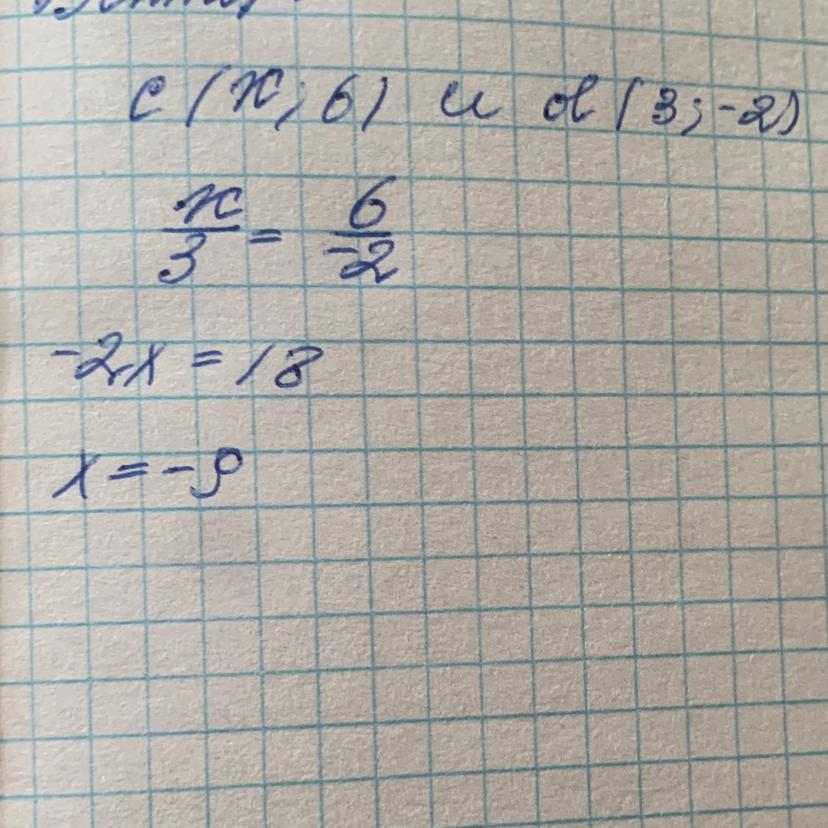 c (x; 6) и d (3; -2)
x/3 = 6/-2
-2x = 18
x = -9